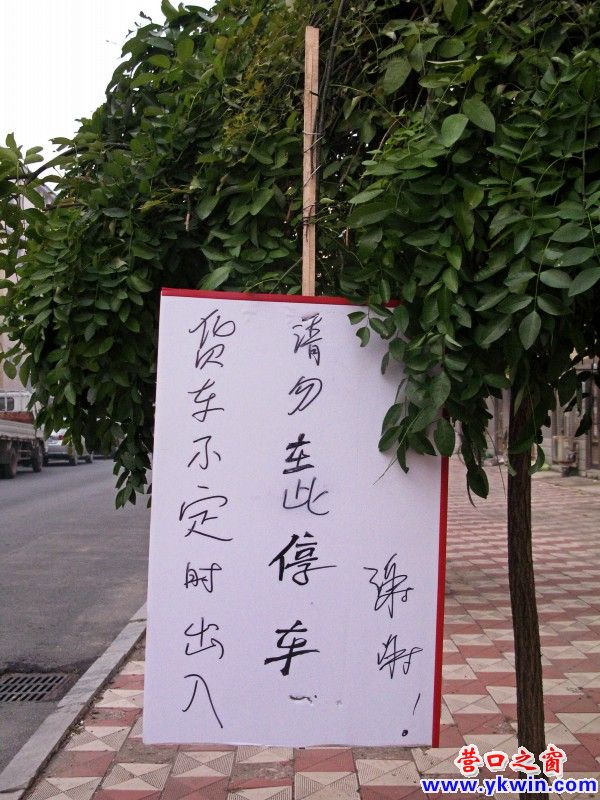 货车不定时出入
请勿在此停车
谢谢!
营口之窗
www.ykwin.com